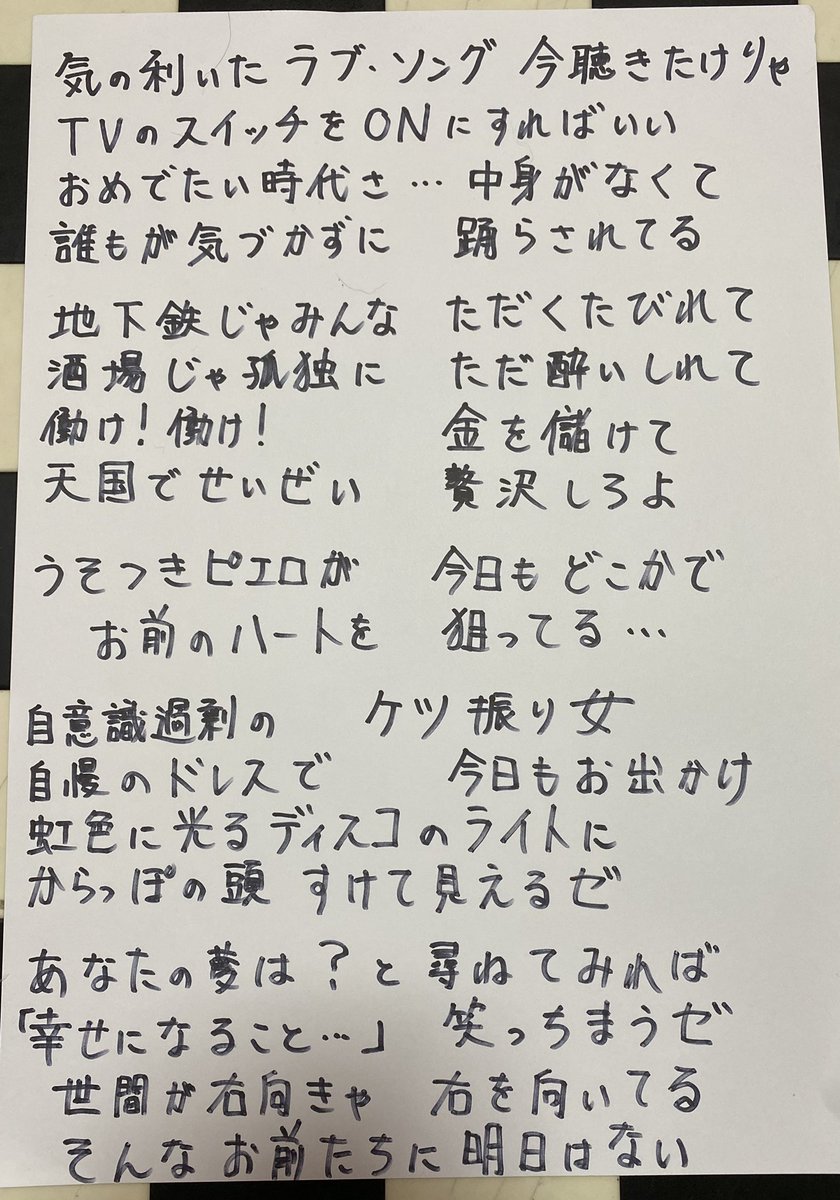 気の利いた ラブ・ソング 今聴きたけりゃ
TVのスイッチをONにすればいい
おめでたい時代さ… 中身がなくて
誰もが気づかずに 踊らされてる
地下鉄じゃみんな ただくたびれて
酒場じゃ孤独に ただ酔いしれて
働け!働け! 金を儲けて
天国でせいぜい 贅沢しろよ
うそつきピエロが 今日もどこかで
お前のハートを 狙ってる…
自意識過剰の ケツ振り女
自慢のドレスで 今日もお出かけ
虹色に光るディスコのライトに
からっぽの頭 すけて見えるゼ
あなたの夢は?と尋ねてみれば
「幸せになること…」 笑っちまうゼ
世間が右向きゃ 右を向いてる
そんなお前たちに明日はない